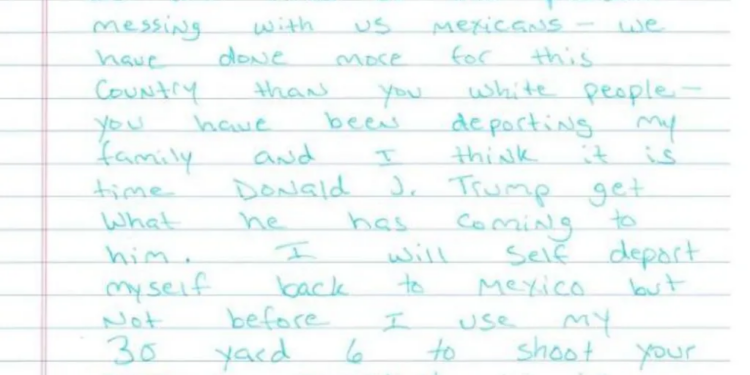 messing with us mexicans - we
have done more for this
Country than you white people -
you have been deporting my
family and I think it is
time Donald J. Trump get
What he has coming to
him. I will Self deport
myself back to Mexico but
Not before I use my
30 yard 6 to shoot your